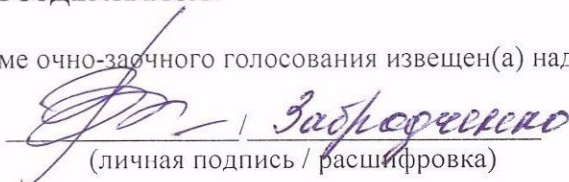 ме очно-заочного голосования извещен(а) над
/ Забродченко
(личная подпись / расшифровка)